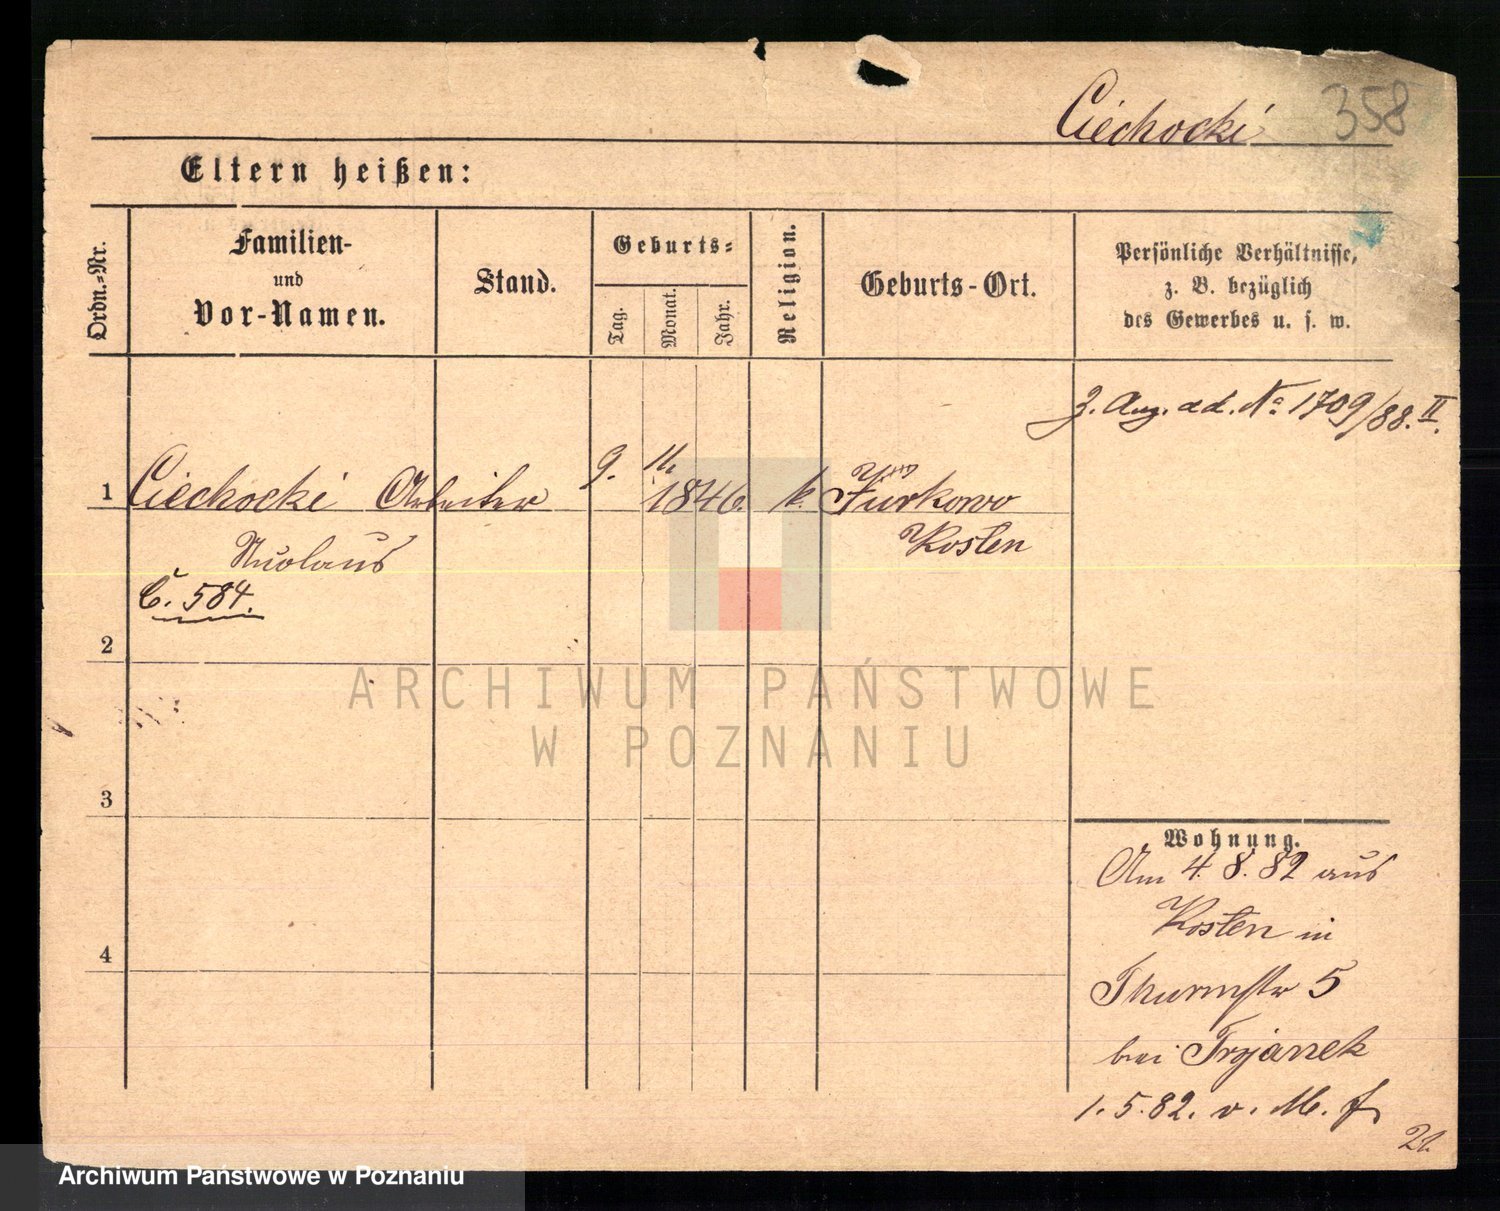 Ciechocki 358
Eltern heißen:
Ordn.-Nr.
Familien-
und
Vor-Namen.
Stand.
Geburts-
Tag.
Monat.
Jahr.
Religion.
Geburts-Ort.
Persönliche Verhältnisse,
z. B. bezüglich
des Gewerbes u. s. w.
z. Aug. ad. No 1709/88. II.
1 Ciechocki Arbeiter 9. 11. 1846. k. Turkowo
Kosten
C. 584.
2
3
4
Wohnung.
Am 4. 8. 82 aus
Kosten in
Thurmstr 5
bei Trojanek
1. 5. 82. v. M. f
21.
ARCHIWUM PAŃSTWOWE
W POZNANIU
Archiwum Państwowe w Poznaniu